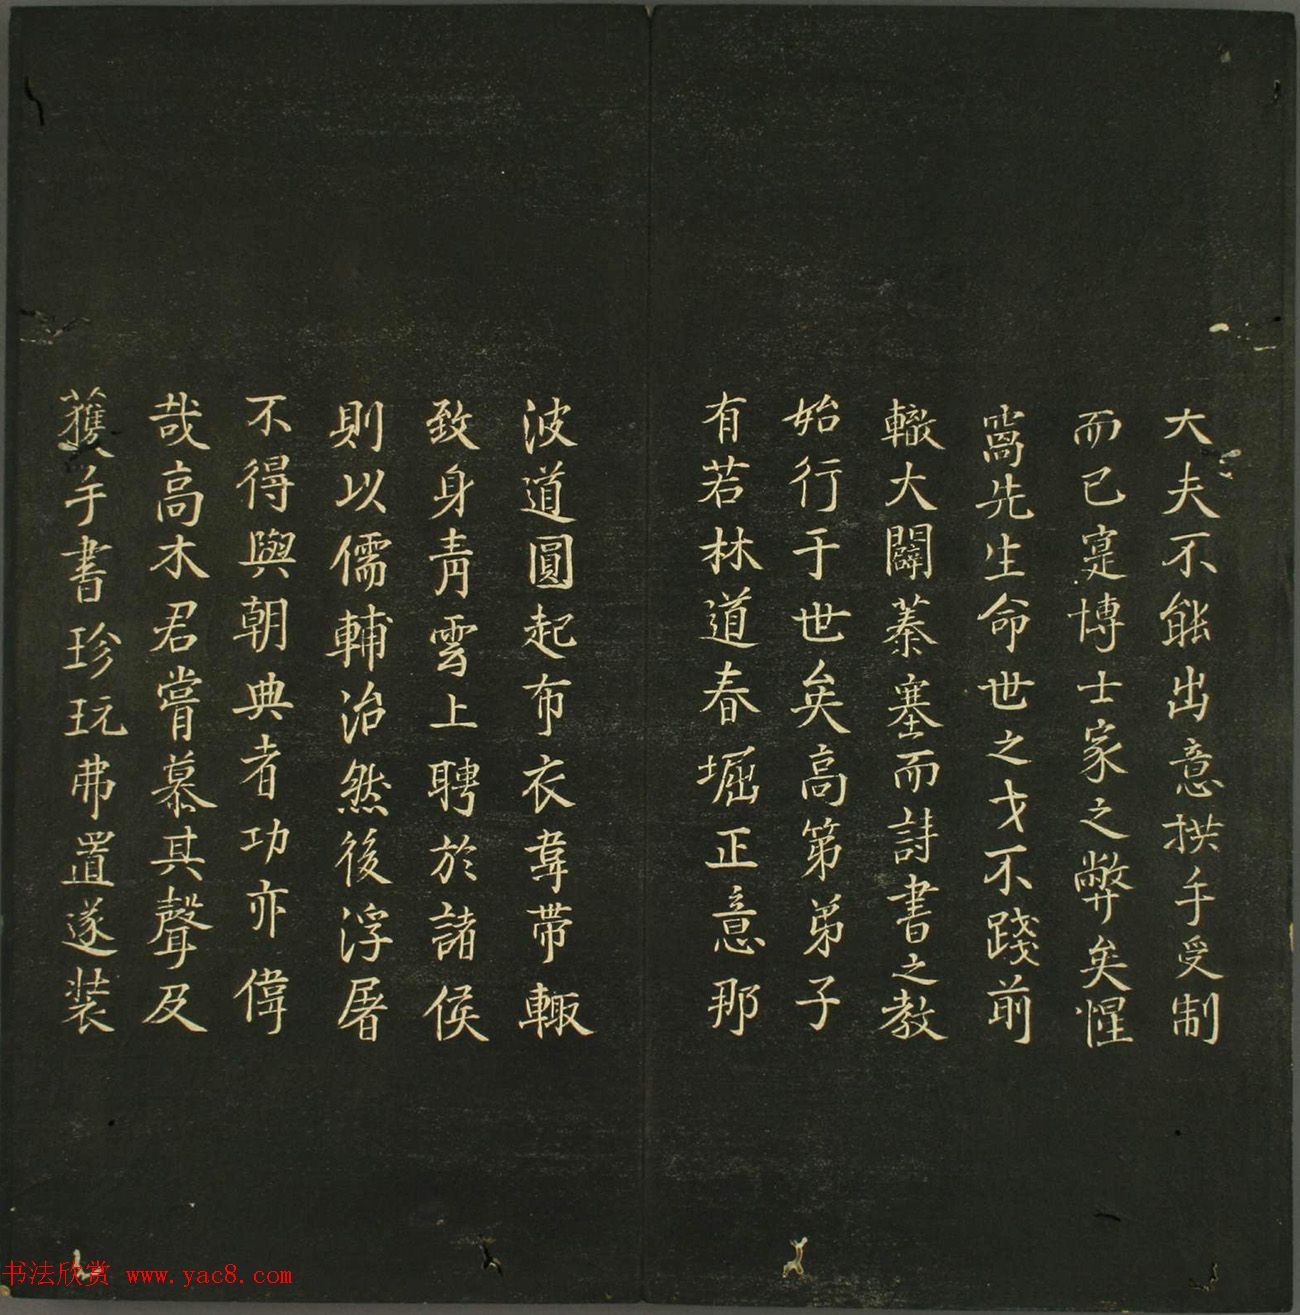 大夫不能出意拱手受制
而已寔博士家之弊矣惺
窩先生命世之才不踐前
轍大闢蓁塞而詩書之教
始行于世矣高第弟子
有若林道春堀正意那
波道圓起布衣韋帶輙
致身青雲上聘於諸侯
則以儒輔治然後浮屠
不得與朝典者功亦偉
哉高木君嘗慕其聲及
獲手書珍玩弗置遂装
书法欣赏 www.yac8.com